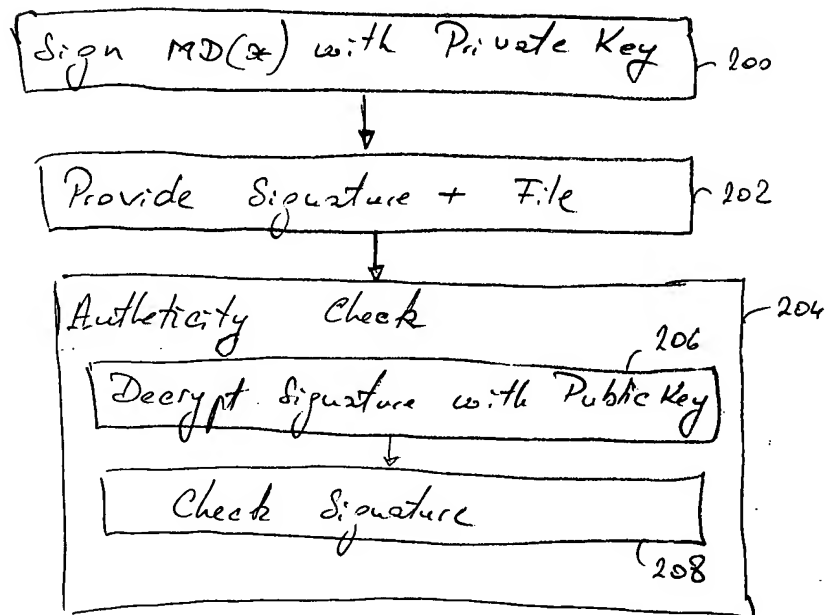 Sign MD(x) with Private Key
200
Provide Signature + File
202
Autheticity Check
204
206
Decrypt Signature with Public Key
Check Signature
208